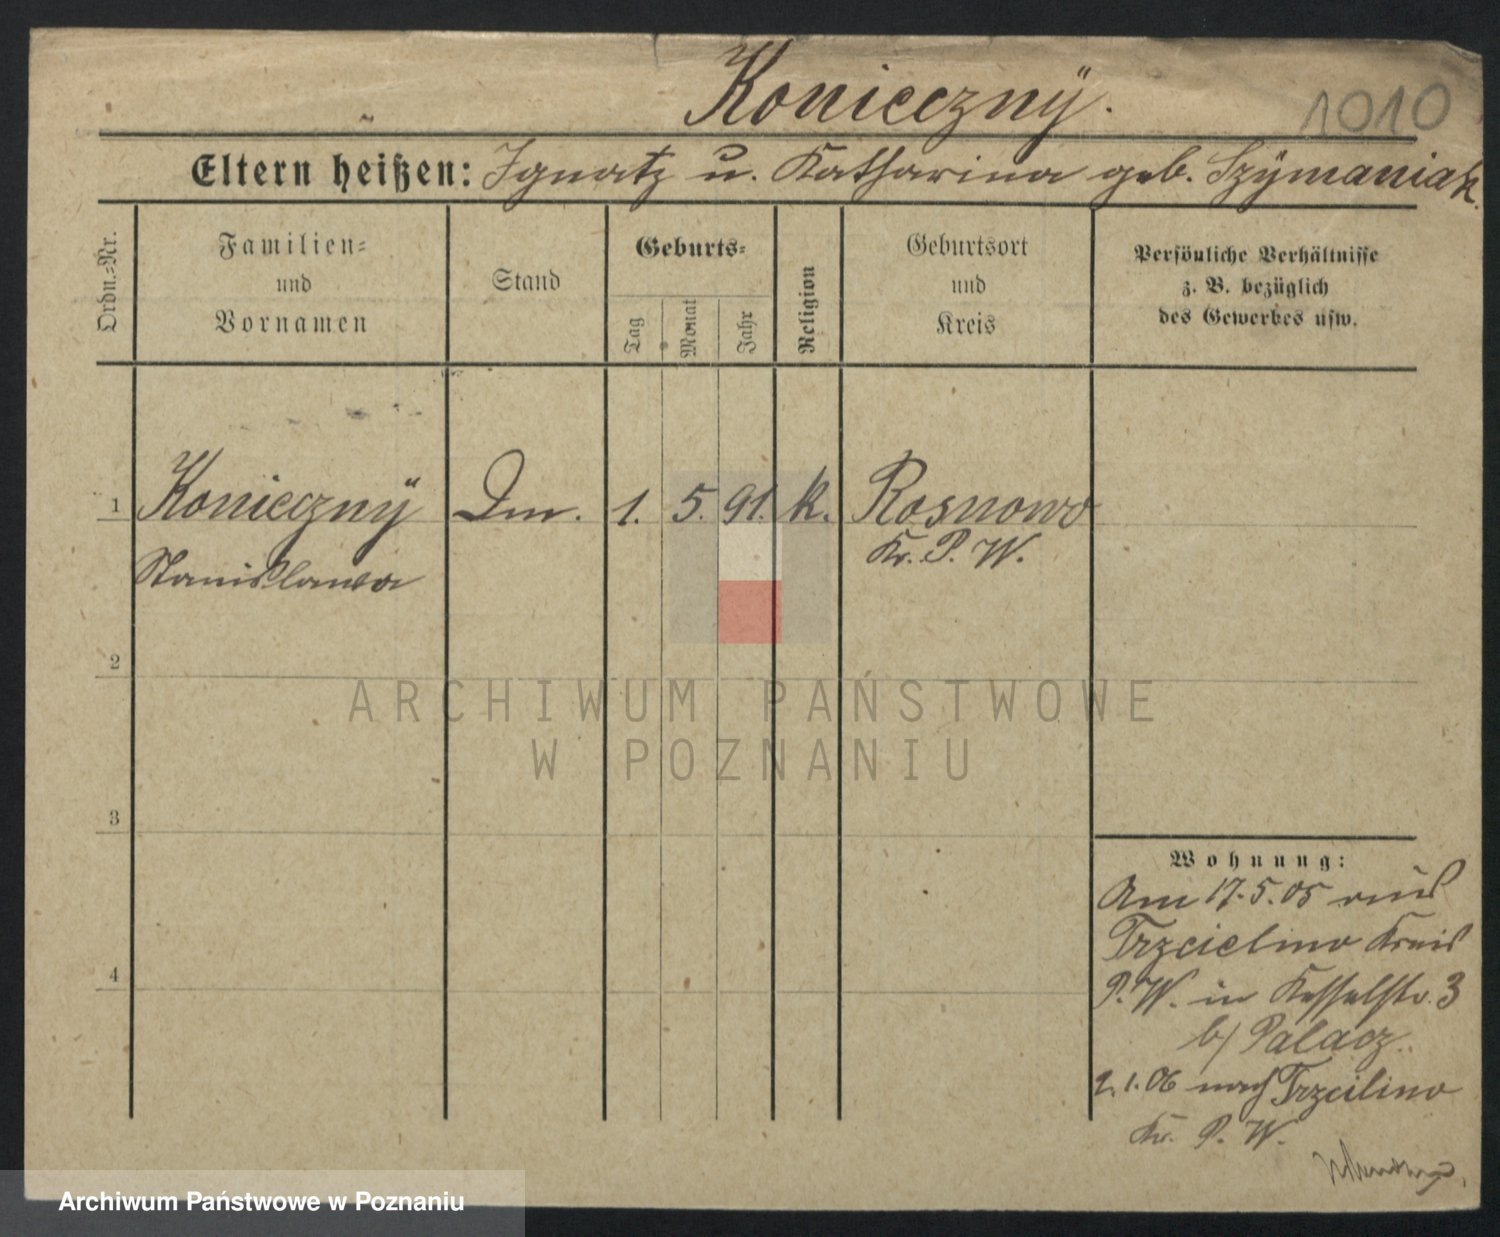 Koniecznÿ.
1010
Eltern heißen: Ignatz u. Katharina geb. Szÿmaniak.
Ordn.-Nr.
Familien-
und
Vornamen
Stand
Geburts-
Tag
Monat
Jahr
Religion
Geburtsort
und
Kreis
Persönliche Verhältnisse
z. B. bezüglich
des Gewerbes usw.
1 Koniecznÿ Dm. 1. 5. 91. k. Rosnowo
Kr. P. W.
Stanislawa
2
ARCHIWUM PAŃSTWOWE
W POZNANIU
3
Wohnung:
Am 17.5.05 aus
Trzcielino Kreis
P. W. in Kesselstr. 3
b/ Palacz.
4
2.1.06 nach Trzcilino
Kr. P. W.
Archiwum Państwowe w Poznaniu